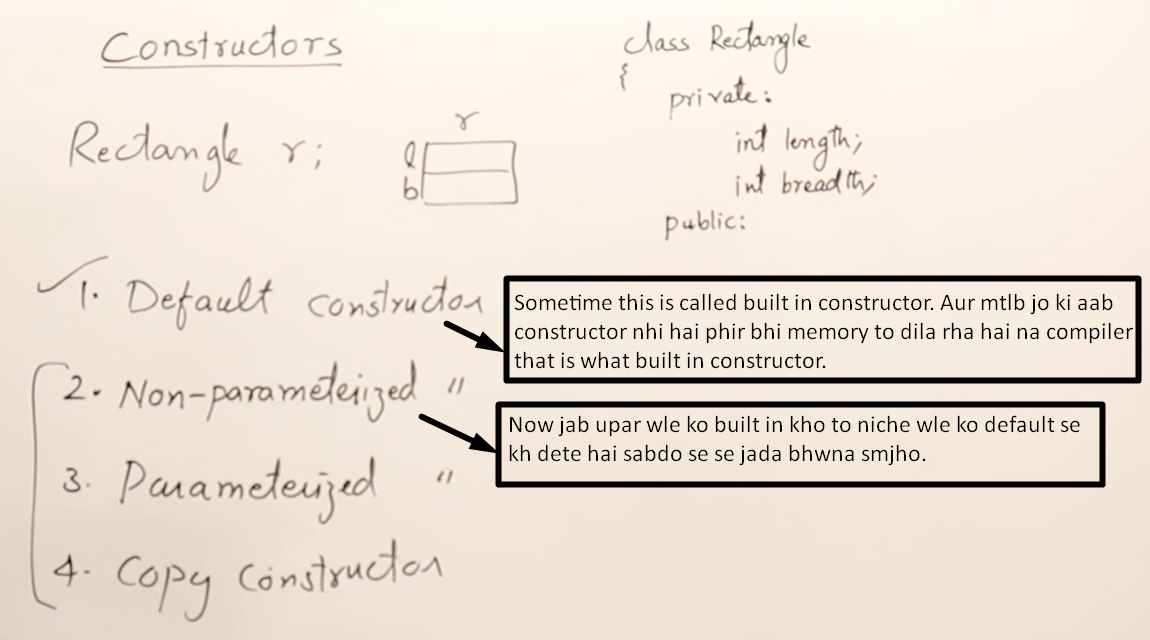 Constructors
Rectangle r;
r
l
b
class Rectangle
{
private:
int length;
int breadth;
public:
1. Default constructor
Sometime this is called built in constructor. Aur mtlb jo ki aab
constructor nhi hai phir bhi memory to dila rha hai na compiler
that is what built in constructor.
2. Non-parameterized "
Now jab upar wle ko built in kho to niche wle ko default se
kh dete hai sabdo se se jada bhwna smjho.
3. Parameterized "
4. Copy Constructor